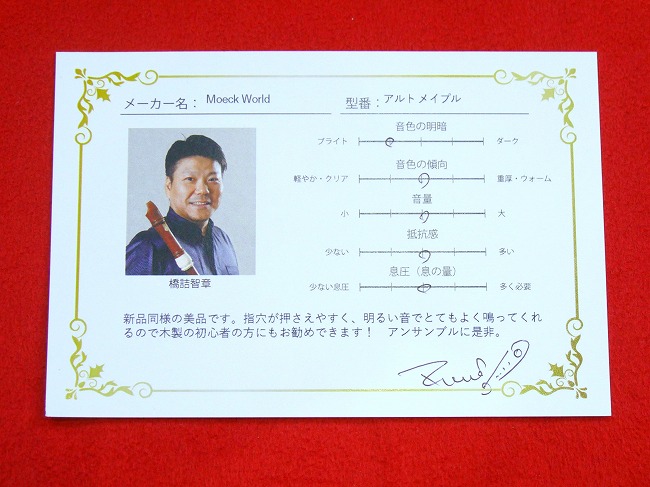 メーカー名： Moeck World
型番： アルト メイプル
音色の明暗
ブライト ダーク
音色の傾向
軽やか・クリア 重厚・ウォーム
音量
小 大
抵抗感
少ない 多い
息圧（息の量）
少ない息圧 多く必要
橋詰智章
新品同様の美品です。指穴が押さえやすく、明るい音でとてもよく鳴ってくれ
るので木製の初心者の方にもお勧めできます！　アンサンブルに是非。